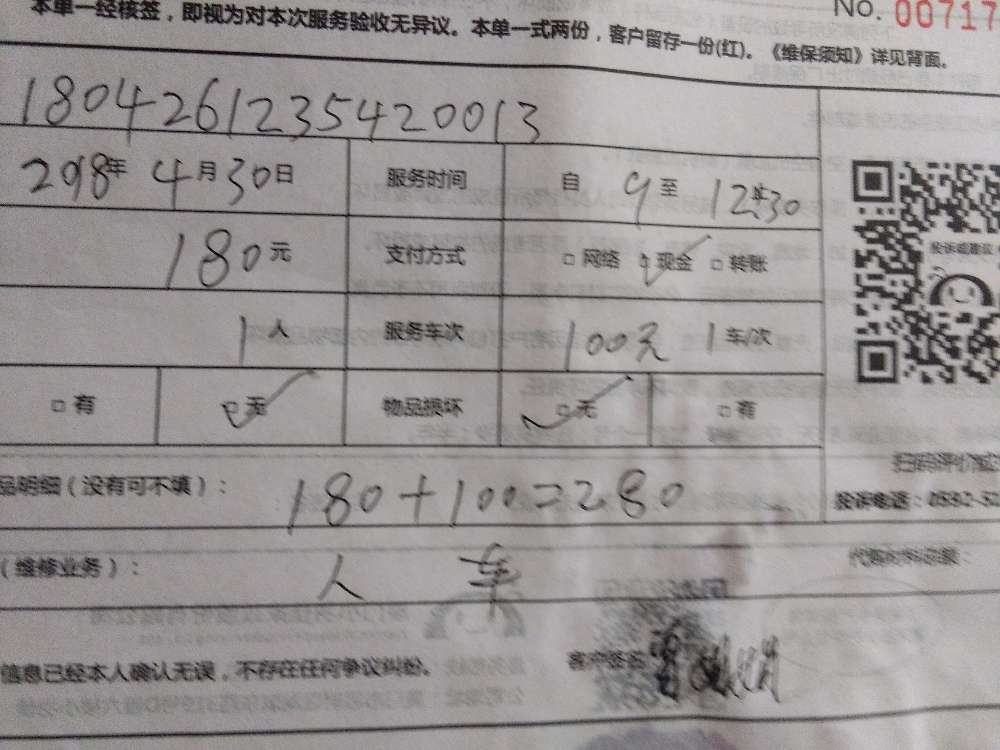 本单一经核签，即视为对本次服务验收无异议。本单一式两份，客户留存一份(红)。《维保须知》详见背面。
No. 00717
1804261235420013
2018年 4月30日 服务时间 自 9 至 12:30
180元 支付方式 □ 网络 □ 现金 □ 转账
1人 服务车次 100元 1车/次
□ 有 □ 无 物品损坏 □ 无 □ 有
品明细（没有可不填）： 180+100=280
扫码评价
投诉电话：0592-5
（维修业务）： 人 车
代购材料总额：
信息已经本人确认无误，不存在任何争议纠纷。 客户签名
投诉或建议